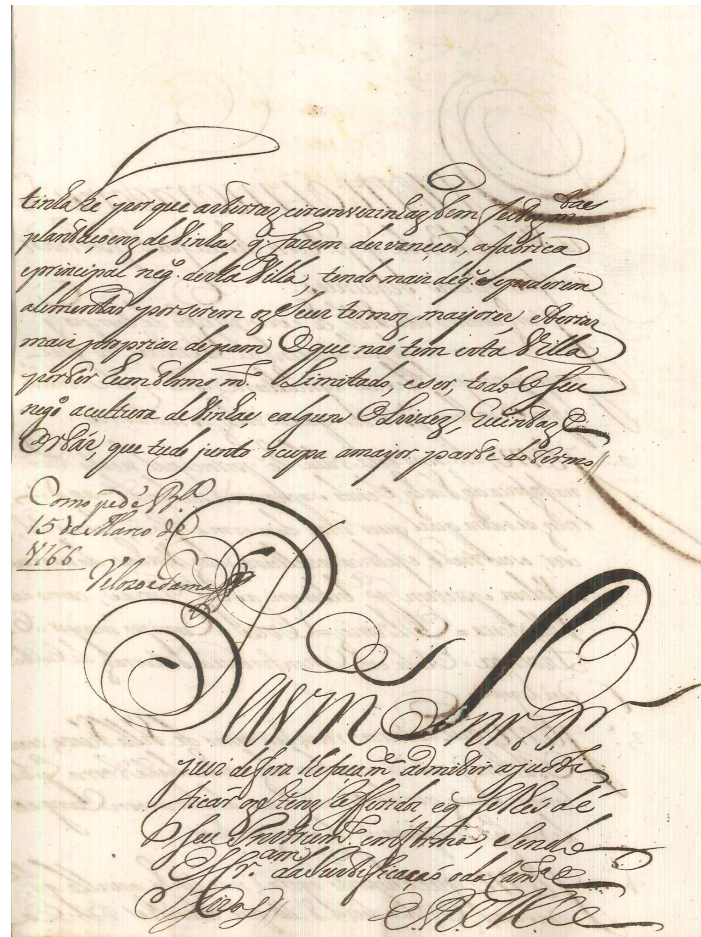 tinha hé porque as terras circumvezinhas tem feito m.tas
plantaçoenz de vinhas q. fazem desvanecer, a fabrica
e principal neg.º desta Villa, tendo mais de q. se poderem
alimentar por serem oz seus termoz mayores e terras
mais proprias de pam O que nas tem esta Villa
por ter hum termo m.to Limitado, e ser, todo O seu
neg.º a cultura de Vinhas, e alguns Olivaez, Quintaz e
Ortas, que tudo junto ocupa a mayor parte do termo //
Como pede R.ª
15 de Março de
1766
Velozo e Gama
P. a V. M. Snr. D.r
juis de fora lhe faça m.ce admitir a justi
ficar oz Itenz referidos e q. se lhes dê
Seu Instrum.to em forma, e sendo
da Justificação o da Cam.ra
E. R. M.ce